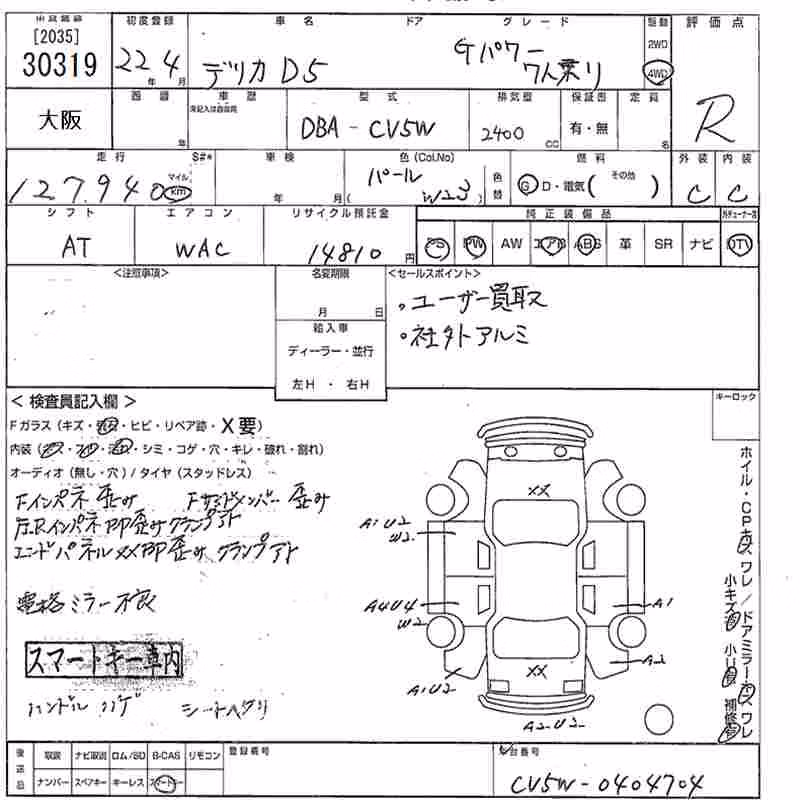 [2035]
30319
初度登録
車名
ドア
グレード
駆動
評価点
22年4月
デリカD5
Gパワー
7人乗り
2WD
4WD
R
大阪
西暦
車歴
型式
排気量
保証書
定員
年
DBA-CV5W
2400
CC
有・無
名
走行
S#*
車検
色(Col.No)
燃料
外装
内装
127,940
マイル
km
年
月
パール
W23
色替
G
D・電気(
その他
)
C
C
シフト
エアコン
リサイクル預託金
純正装備品
AT
WAC
14810
円
PS
PW
AW
エアB
ABS
革
SR
ナビ
DTV
<注意事項>
名変期限
<セールスポイント>
月
日
・ユーザー買取
・社外アルミ
輸入車
ディーラー・並行
左H・右H
<検査員記入欄>
キーロック
Fガラス(キズ・・ヒビ・リペア跡・X要)
内装(・・・シミ・コゲ・穴・キレ・破れ・割れ)
オーディオ(無し・穴)/タイヤ(スタッドレス)
Fインパネ歪み Fサイドメンバー歪み
左Rインパネ即歪みクランプアト
エンドパネルXX即歪みクランプアト
電格ミラー不良
スマートキー車内
ハンドルハゲ シートヘタリ
XX
A1U2
W2
A4U4
W2
A1
A2
XX
A1U2
A2U2
ホイル・CPキズワレ/ドアミラーキズワレ
小キズ 小U 補修
後送品
取説
ナビ取説
ロム/SD
B-CAS
リモコン
登録番号
車台番号
ナンバー
スペアキー
キーレス
スマートキー
CV5W-0404704